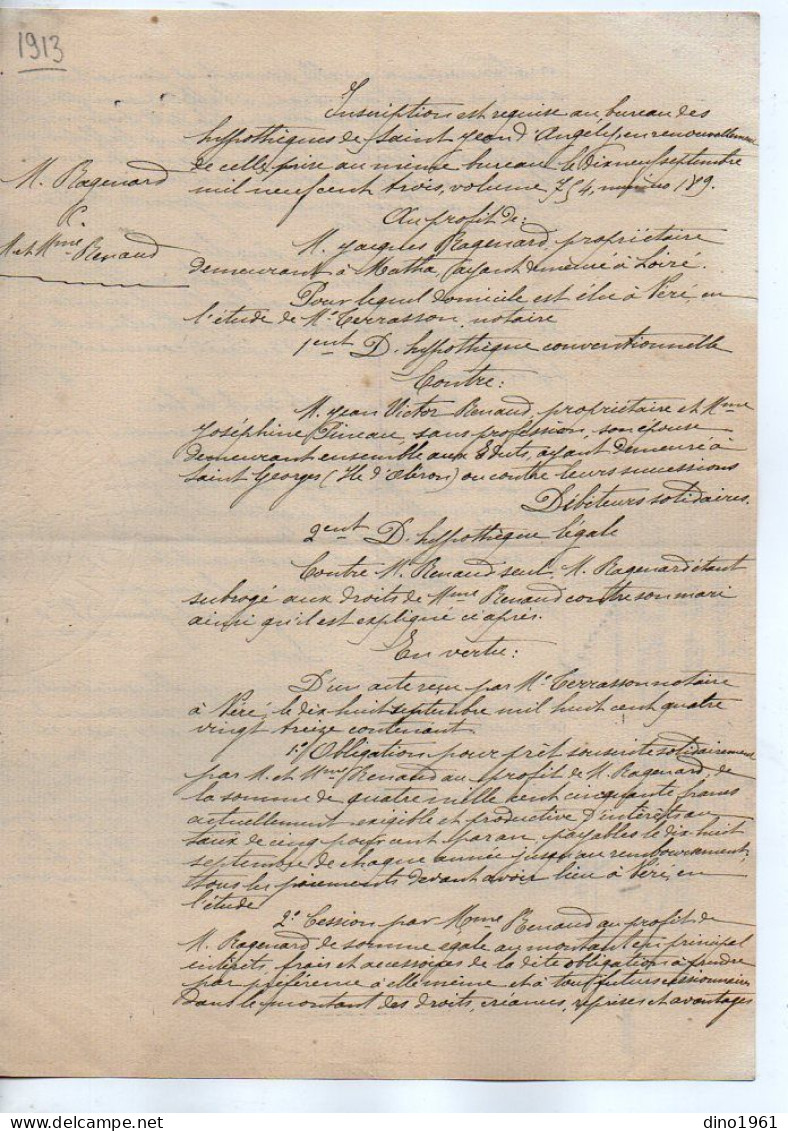 1913
Inscription est requise au bureau des
hypothèques de Saint Jean d'Angely, en renouvellement
de celle prise au même bureau le dix neuf septembre
mil neuf cent trois, volume 754, numéro 189.
M. Ragenard
C.
M. et Mme Renaud
Au profit de:
M. Jacques Ragenard, propriétaire
demeurant à Matha, (ayant demeuré à Loiré.
Pour lequel domicile est élu à Néré, en
l'étude de Me Terrasson, notaire
1ent D. hypothèque conventionnelle
Contre:
M. Jean Victor Renaud, propriétaire et Mme
Joséphine Pineau, sans profession, son épouse
demeurant ensemble aux Eduts, ayant demeuré à
Saint Georges (Ile d'Oléron) ou contre leurs successions
Débiteurs solidaires.
2ent D. hypothèque légale
Contre M. Renaud seul, M. Ragenard étant
subrogé aux droits de Mme Renaud contre son mari
ainsi qu'il est expliqué ci après.
En vertu:
D'un acte reçu par Me Terrasson notaire
à Néré, le dix huit septembre mil huit cent quatre
vingt treize contenant
1º/ Obligation pour prêt souscrite solidairement
par M. et Mme Renaud au profit de M. Ragenard, de
la somme de quatre mille cent cinquante francs
actuellement exigible et productive d'intérêts au
taux de cinq pour cent par an, payables le dix huit
septembre de chaque année jusqu'au remboursement;
tous les paiements devant avoir lieu à Néré, en
l'étude
2º Cession par Mme Renaud au profit de
M. Ragenard de somme egale au montant en principal
intérêts, frais et accessoires de la dite obligation à prendre
par préférence à elle même et à tout futurs cessionnaires
dans le montant des droits, créances, reprises et avantages
dino1961